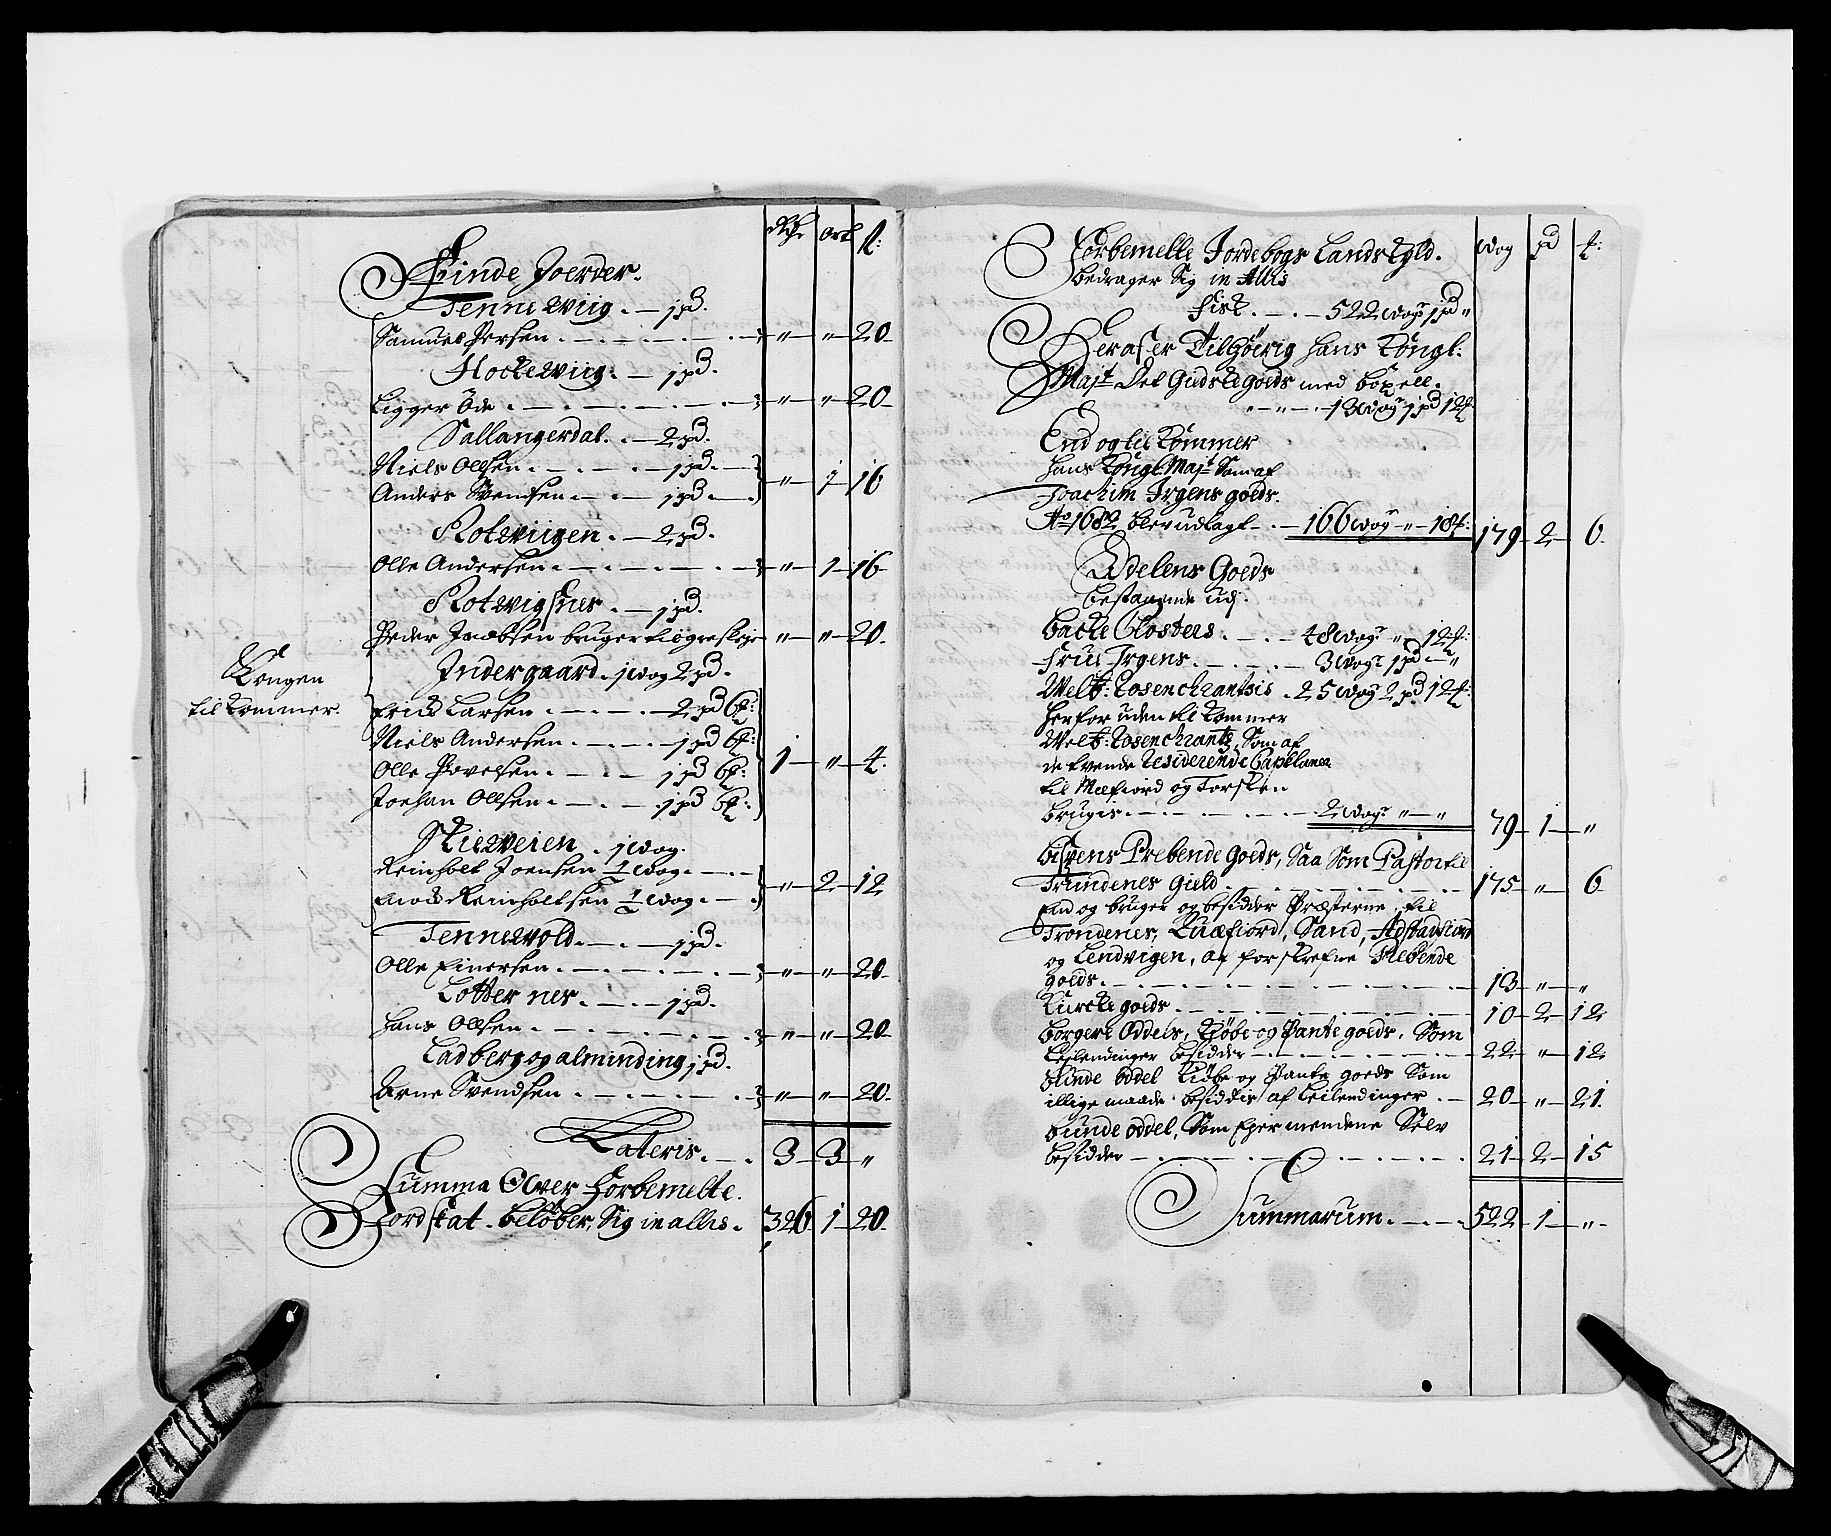 Rdr. ort ß:
Finde Joerder.
Tennewiig. — 1 pd.
Samuel Persen . — „ — „ — 20
Hockewiig. — 1 pd.
Ligger Öde . — „ — „ — 20
Sallangerdal. — 2 pd.
Niels Ollsen . — 1 pd. —
Anders Svendsen . — 1 pd. — „ — 1 — 16
Rotwiigen. — 2 pd.
Olle Andersen . — „ — 1 — 16
Rotwigsnes. — 1 pd.
Peder Jacobsen bruger — „ — „ — 20.
Indergaard. 1 wog 2 pd.
Kongen
til kommer.
Erick Larsen . — 2 pd 6 ß:
Niels Andersen . — 1 pd 6 ß:
Olle Povelsen . — 1 pd 6 ß: 1 — „ — 4.
Joehan Ollsen . — 1 pd 6 ß:
Skieveien . 1 wog.
Reinholt Joensen ½ wog. —
Reinholtsen ½ wog. — „ — 2 — 12
Tennevold. — 1 pd.
Olle Einersen . — „ — „ — 20
Lotternes. — 1 pd.
Hans Ollsen . — „ — „ — 20
Ladberg og alminding 1 pd.
Arne Svendsen . — „ — „ — 20
Lateris. — 3 — 3 — „
Summa Over Forbemelte.
Jordskat . beløber, Sig in allis. 326 — 1 — 20
wog pd ß:
Forbemelte Jordebogs Landskyld.
bedrager Sig in Allis
Fisk. — 522 wog 1 pd „
Deraf er Tilhöerig Hans Kongl:
Majt Det Gudske goeds med böxell.
„ — „ — 13 wog 1 pd 12 ß
End og til kommer
Hans Kongl: Majt Som af
Joachim Irgens goeds.
Ao 1682 blev udlagt — 166 wog „ — 18 ß: 179 — 2 — 6.
Adelens Goeds
bestaaende udj.
Backe Closters . — 48 wog „ 12 ß:
Frue Irgens . — 3 wog 1 pd — „
Welb: Rosenchrantzis . 25 wog 2 pd 12 ß:
Herfor uden til kommer
Welb: Rosenchrantz, Som af
de tvende Residerende Capellaner
til Meefiord og Torsken
brugis . — 2 wog „ — „ 79 — 1 — „
bispens Prebende Goeds, Saa Som Pastor til
Trundenes Gield . — 175 — „ — 6
End og bruger og besidder Præsterne til
Trondenes, Quæfiord, Sand, Astadfiord
og Lendvigen, af forskrefne Prebende
goeds . — 13 — „ — „
Kircke goeds . — 10 — 2 — 12
borgere Oddels, Kjøbe og Pante goeds, Som
Leilendinger besidder . — 22 — „ — 12
bunde oddel Kiøbe og Pante goeds Som
illige maade besiddis af Leilendinger . — 20 — „ — 21.
bunde oddel, Som Eyermendene Selv
besidder — 21 — 2 — 15
Summarum . — 522 — 1 — „